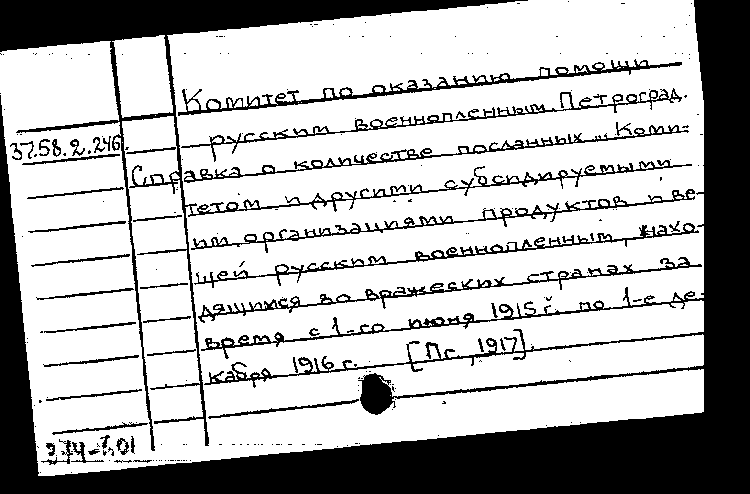 Комитет по оказанию помощи
русским военнопленным. Петроград.
37.58.2.246.
Справка о количестве посланных „Коми-
тетом и другими субсидируемыми
им организациями продуктов и ве-
щей русским военнопленным, нахо-
дящимся во вражеских странах за
время с 1-го июня 1915 г. по 1-е де-
кабря 1916 г. [Пг., 1917].